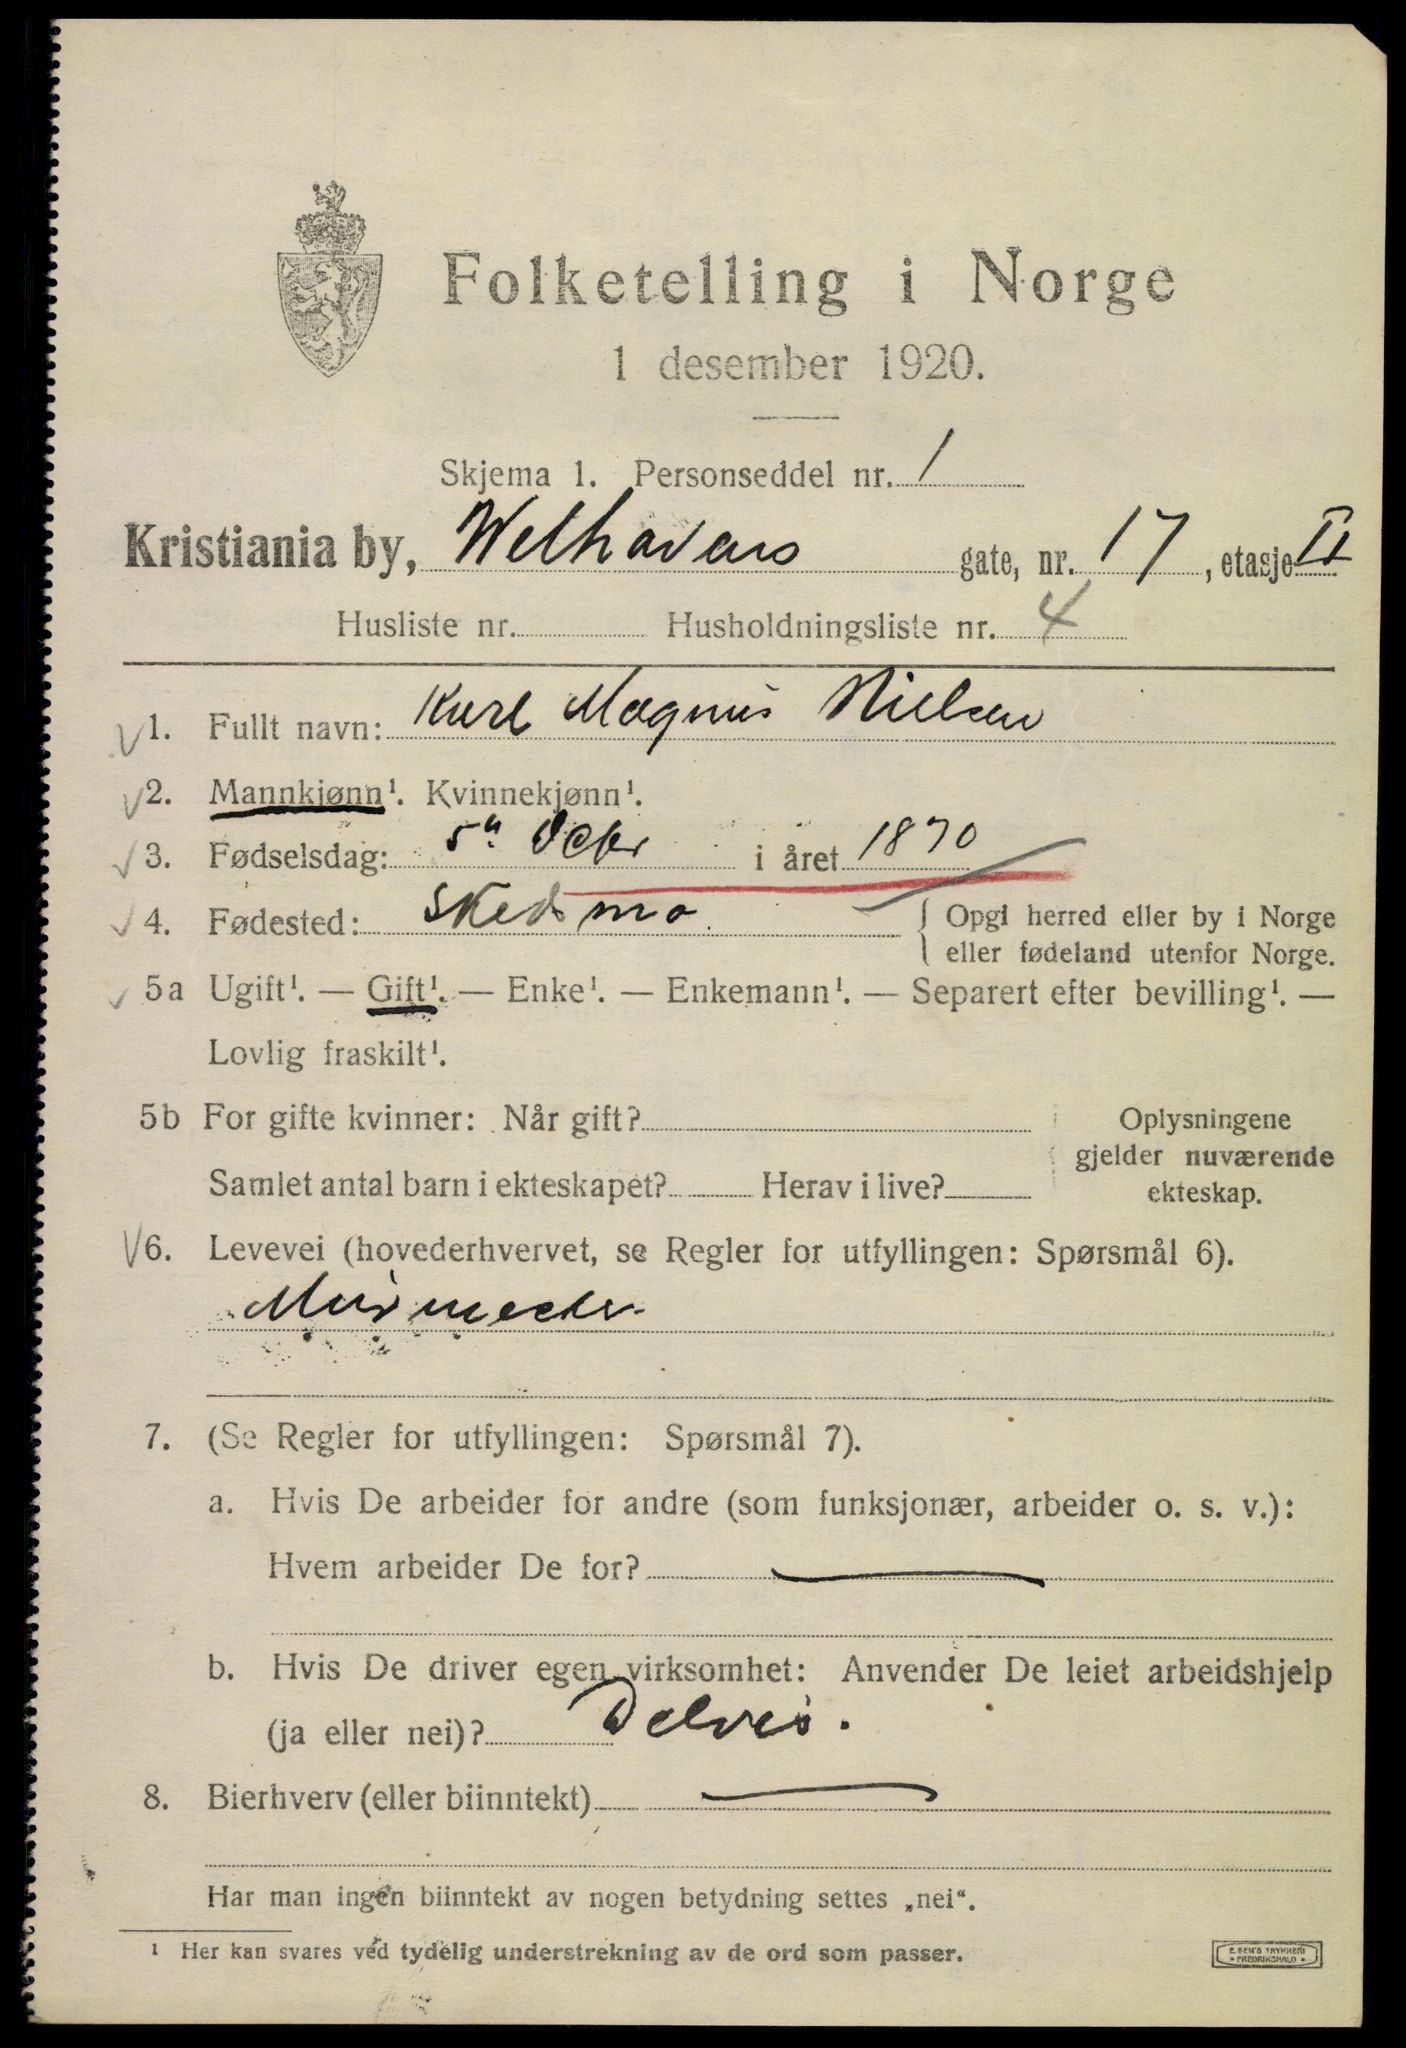 Folketelling i Norge
1 desember 1920.
Skjema 1. Personseddel nr. 1
Kristiania by, Welhavens gate, nr. 17, etasje II
Husliste nr. Husholdningsliste nr. 4
1. Fullt navn: Karl Magnus Nielsen
2. Mannkjønn¹. Kvinnekjønn¹.
3. Fødselsdag: 5te Octbr i året 1870
4. Fødested: Skedsmo. { Opgi herred eller by i Norge
eller fødeland utenfor Norge.
5a Ugift¹. — Gift¹. — Enke¹. — Enkemann¹. — Separert efter bevilling¹. —
Lovlig fraskilt¹.
5b For gifte kvinner: Når gift? Oplysningene
gjelder nuværende
Samlet antal barn i ekteskapet? Herav i live? ekteskap.
6. Levevei (hovederhvervet, se Regler for utfyllingen: Spørsmål 6).
Murmester
7. (Se Regler for utfyllingen: Spørsmål 7).
a. Hvis De arbeider for andre (som funksjonær, arbeider o. s. v.):
Hvem arbeider De for? —
b. Hvis De driver egen virksomhet: Anvender De leiet arbeidshjelp
(ja eller nei)? Delvis.
8. Bierhverv (eller biinntekt) —
Har man ingen biinntekt av nogen betydning settes „nei“.
¹ Her kan svares ved tydelig understrekning av de ord som passer.
E. SEM'S TRYKKERI
FREDRIKSHALD